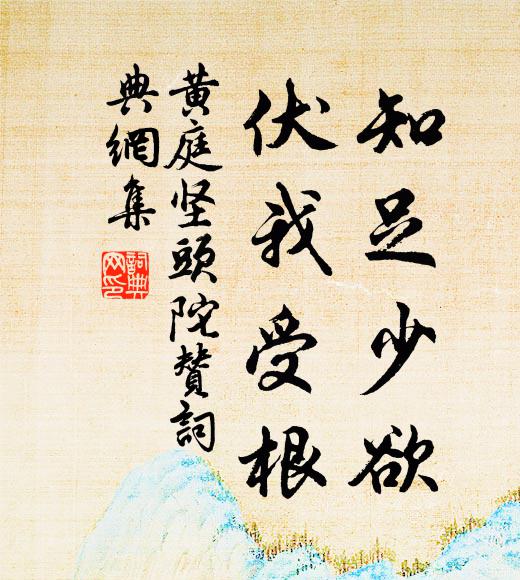 知足少欲
伏我受根
黄庭坚頭陀赞詞
典網集
詞典
网印